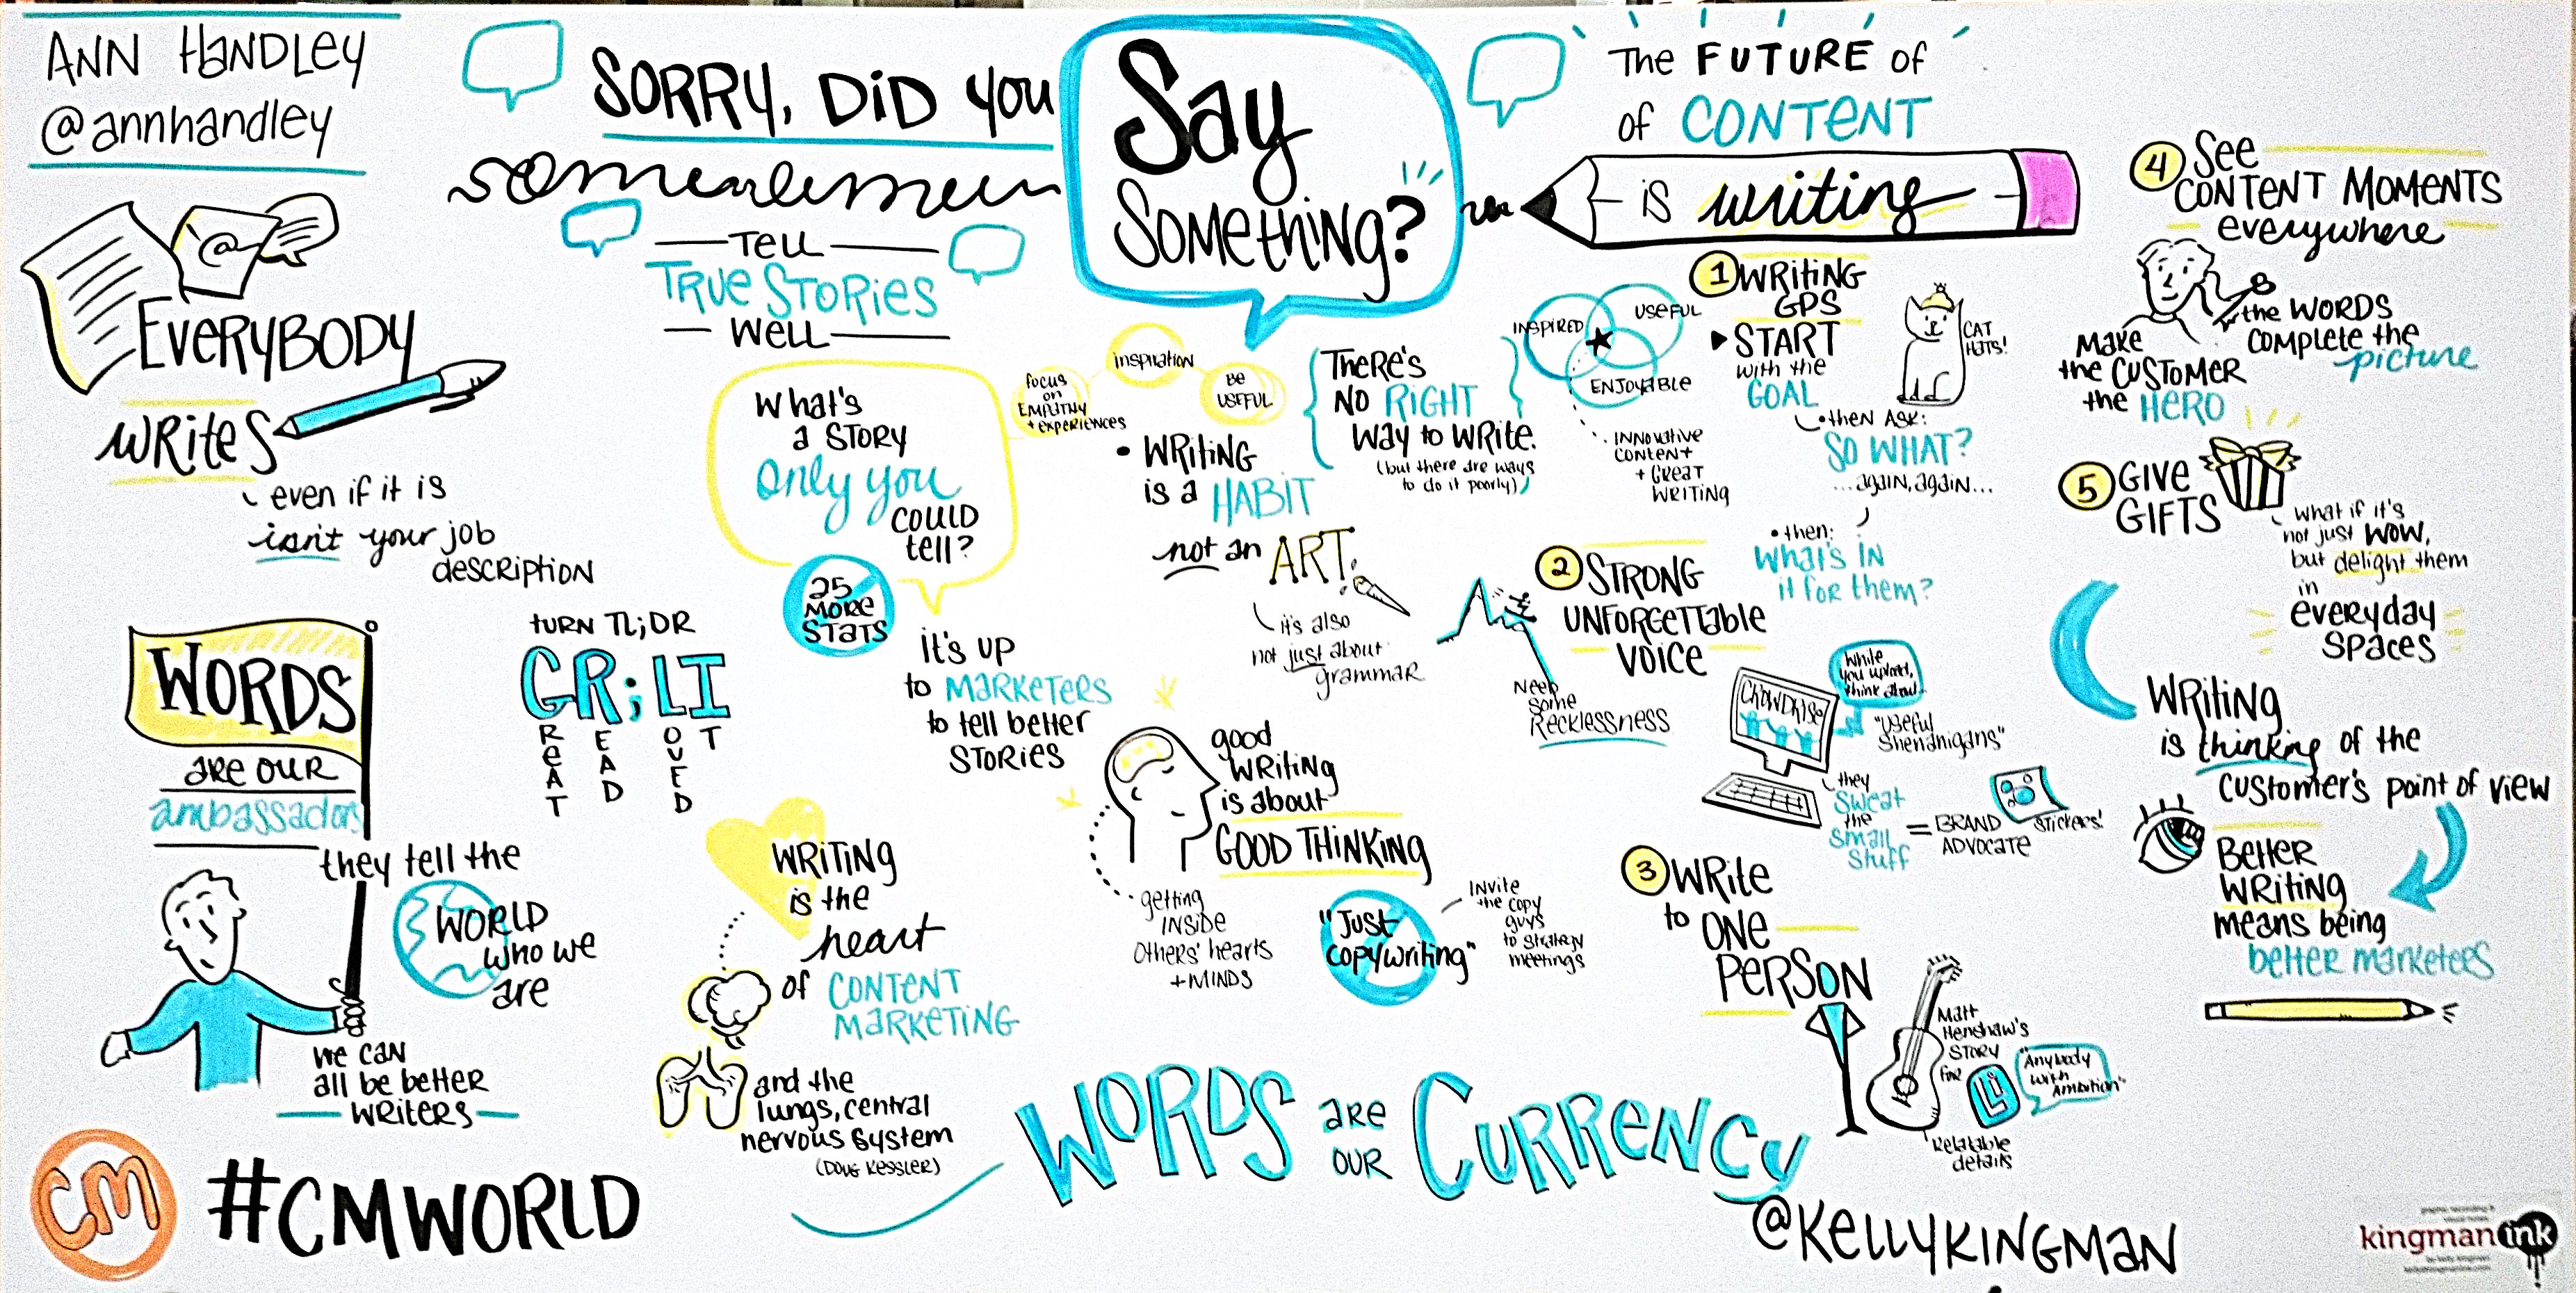 ANN HANDLEY
@annhandley
EVERYBODY
WRITES
even if it is
isn't your job
DESCRIPTION
WORDS
are our
ambassadors
they tell the
WORLD
who we
are
we can
all be better
WRITERS
CM
#CMWORLD
TURN TL;DR
GR;LI
GREAT
READ
LOVED
IT
SORRY, DID YOU
Say
SOMETHING?
TELL
TRUE STORIES
WELL
What's
a STORY
Only you
COULD
tell?
focus
on
EMPATHY
+ experiences
inspiration
Be
USEFUL
25
MORE
STATS
it's UP
to MARKETERS
to tell better
STORIES
WRITING
is the
heart
of CONTENT
MARKETING
and the
lungs, central
nervous system
(DOUG KESSLER)
• WRITING
is a HABIT
not an ART.
it's also
not just about
grammar
THERE'S
NO RIGHT
WAY to WRITE.
(but there are ways
to do it poorly)
good
WRITING
is about
GOOD THINKING
getting
INSIDE
OTHERS' hearts
+ MINDS
"JUST
COPYWRITING"
INVITE
the copy
guys
to strategy
meetings
WORDS are OUR CURRENCY
The FUTURE of
of CONTENT
is writing
INSPIRED
USEFUL
ENJOYABLE
INNOVATIVE
CONTENT
+ GREAT
WRITING
1 WRITING
GPS
START
with the
GOAL
• then ASK:
SO WHAT?
...again, again...
• then:
WHAT'S IN
it for them?
CAT
HATS!
2 STRONG
UNFORGETTABLE
VOICE
NEED
some
RECKLESSNESS
CROWDRISE
While
you upload,
think about..
"USEFUL
Shenanigans"
they
Sweat
the
Small
Stuff
= BRAND
ADVOCATE
STICKERS!
3 WRITE
to ONE
PERSON
Matt
Henshaw's
STORY
for
Li
"Anybody
with
Ambition"
Relatable
details
4 See
CONTENT MOMENTS
everywhere
the WORDS
COMPLETE the
picture
Make
the CUSTOMER
the HERO
5 GIVE
GIFTS
what if it's
not just WOW,
but delight them
in
everyday
SPACES
WRITING
is thinking of the
customer's point of view
Better
WRITING
means being
better marketers
@KELLYKINGMAN
kingman ink